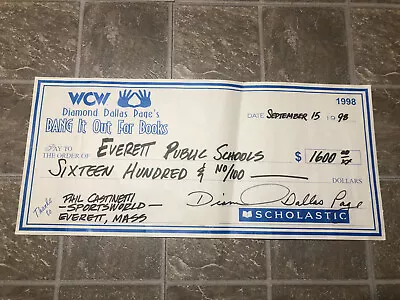 WCW
Diamond Dallas Page's
BANG It Out For Books
1998
DATE SEPTEMBER 15 1998
PAY TO
THE ORDER OF EVERETT PUBLIC SCHOOLS $ 1600 00/xx
SIXTEEN HUNDRED & NO/100 DOLLARS
Thanks to
PHIL CASTINETTI
-SPORTSWORLD-
EVERETT, MASS
Diamond Dallas Page
SCHOLASTIC